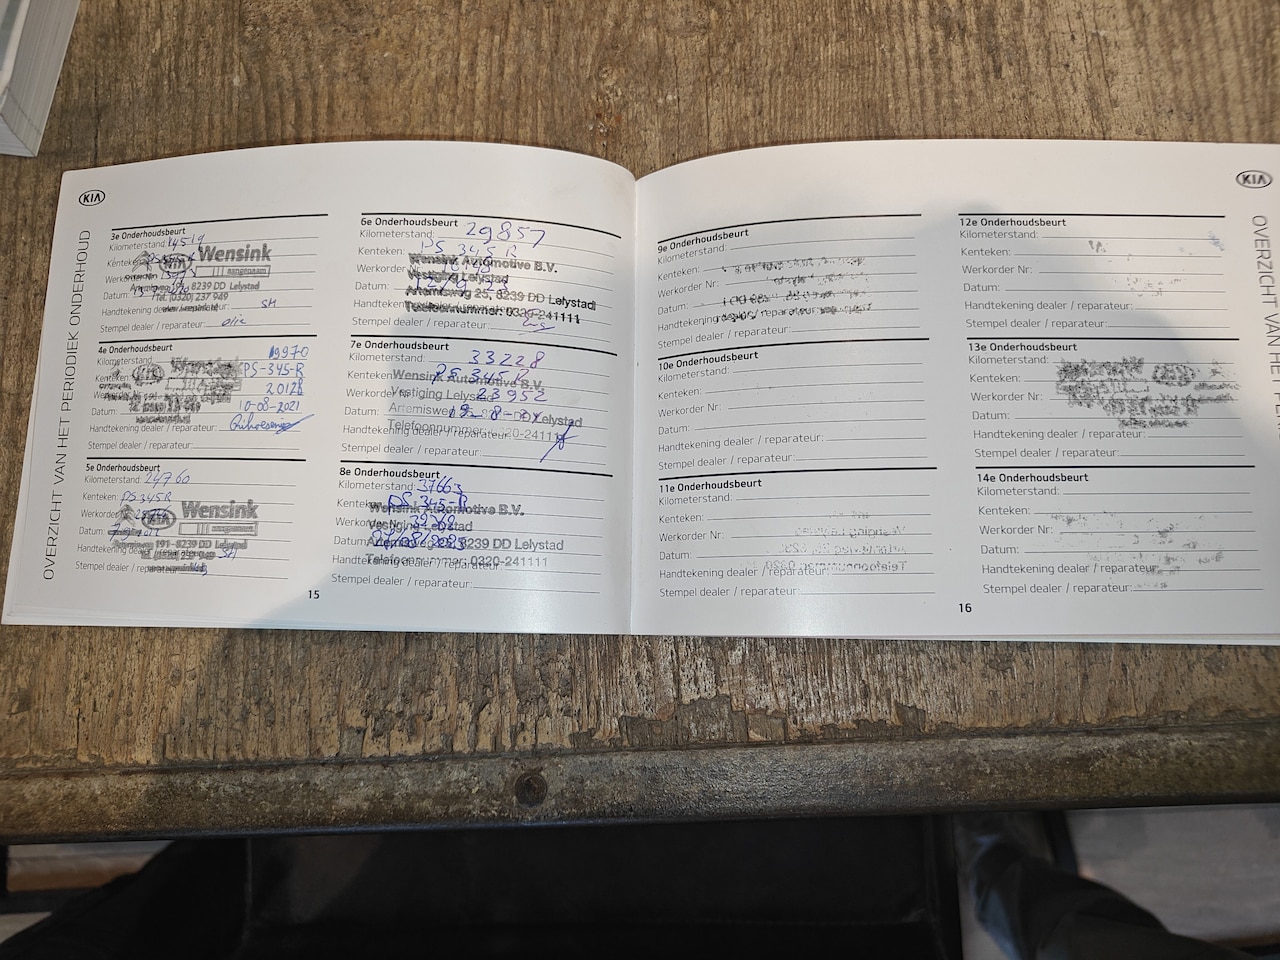 KIA
OVERZICHT VAN HET PERIODIEK ONDERHOUD
3e Onderhoudsbeurt
Kilometerstand: 14519
Kenteken:
Wensink
KIA
aangenaam
Werkorder
Artemisweg 191 - 8239 DD Lelystad
Datum:
Tel. (0320) 237 949
Handtekening dealer / reparateur: SH
Stempel dealer / reparateur: olie
4e Onderhoudsbeurt
Kilometerstand: 19970
Kenteken: PS-345-R
Werkorder 20128
Datum: 10-08-2021
Handtekening dealer / reparateur:
Stempel dealer / reparateur:
5e Onderhoudsbeurt
Kilometerstand: 24760
Kenteken: PS345R
Wensink
KIA
aangenaam
Werkorder
Datum:
Artemisweg 191 - 8239 DD Lelystad
Handtekening dealer / reparateur: SH
Stempel dealer / reparateur:
6e Onderhoudsbeurt
Kilometerstand: 29857
Kenteken: PS 345 R
Wensink Automotive B.V.
Werkorder Nr:
Vestiging Lelystad
Datum:
Artemisweg 25, 8239 DD Lelystad
Handtekening dealer / reparateur:
Telefoonnummer: 0320-241111
Stempel dealer / reparateur:
7e Onderhoudsbeurt
Kilometerstand: 33228
Kenteken: PS 345 R
Wensink Automotive B.V.
Werkorder Nr: 23952
Vestiging Lelystad
Datum:
Artemisweg DD Lelystad
Handtekening dealer / reparateur:
Telefoonnummer: 0320-241111
Stempel dealer / reparateur:
8e Onderhoudsbeurt
Kilometerstand: 37663
Kenteken: PS-345-R
Wensink Automotive B.V.
Werkorder
Vestiging Lelystad
Datum:
Artemisweg 25, 8239 DD Lelystad
Handtekening dealer / reparateur:
Telefoonnummer: 0320-241111
Stempel dealer / reparateur:
15
9e Onderhoudsbeurt
Kilometerstand:
Kenteken:
Werkorder Nr:
Datum:
Handtekening dealer / reparateur:
Stempel dealer / reparateur:
10e Onderhoudsbeurt
Kilometerstand:
Kenteken:
Werkorder Nr:
Datum:
Handtekening dealer / reparateur:
Stempel dealer / reparateur:
11e Onderhoudsbeurt
Kilometerstand:
Kenteken:
Werkorder Nr:
Datum:
Handtekening dealer / reparateur:
Stempel dealer / reparateur:
12e Onderhoudsbeurt
Kilometerstand:
Kenteken:
Werkorder Nr:
Datum:
Handtekening dealer / reparateur:
Stempel dealer / reparateur:
13e Onderhoudsbeurt
Kilometerstand:
Kenteken:
Werkorder Nr:
Datum:
Handtekening dealer / reparateur:
Stempel dealer / reparateur:
14e Onderhoudsbeurt
Kilometerstand:
Kenteken:
Werkorder Nr:
Datum:
Handtekening dealer / reparateur:
Stempel dealer / reparateur:
16
KIA
OVERZICHT VAN HET